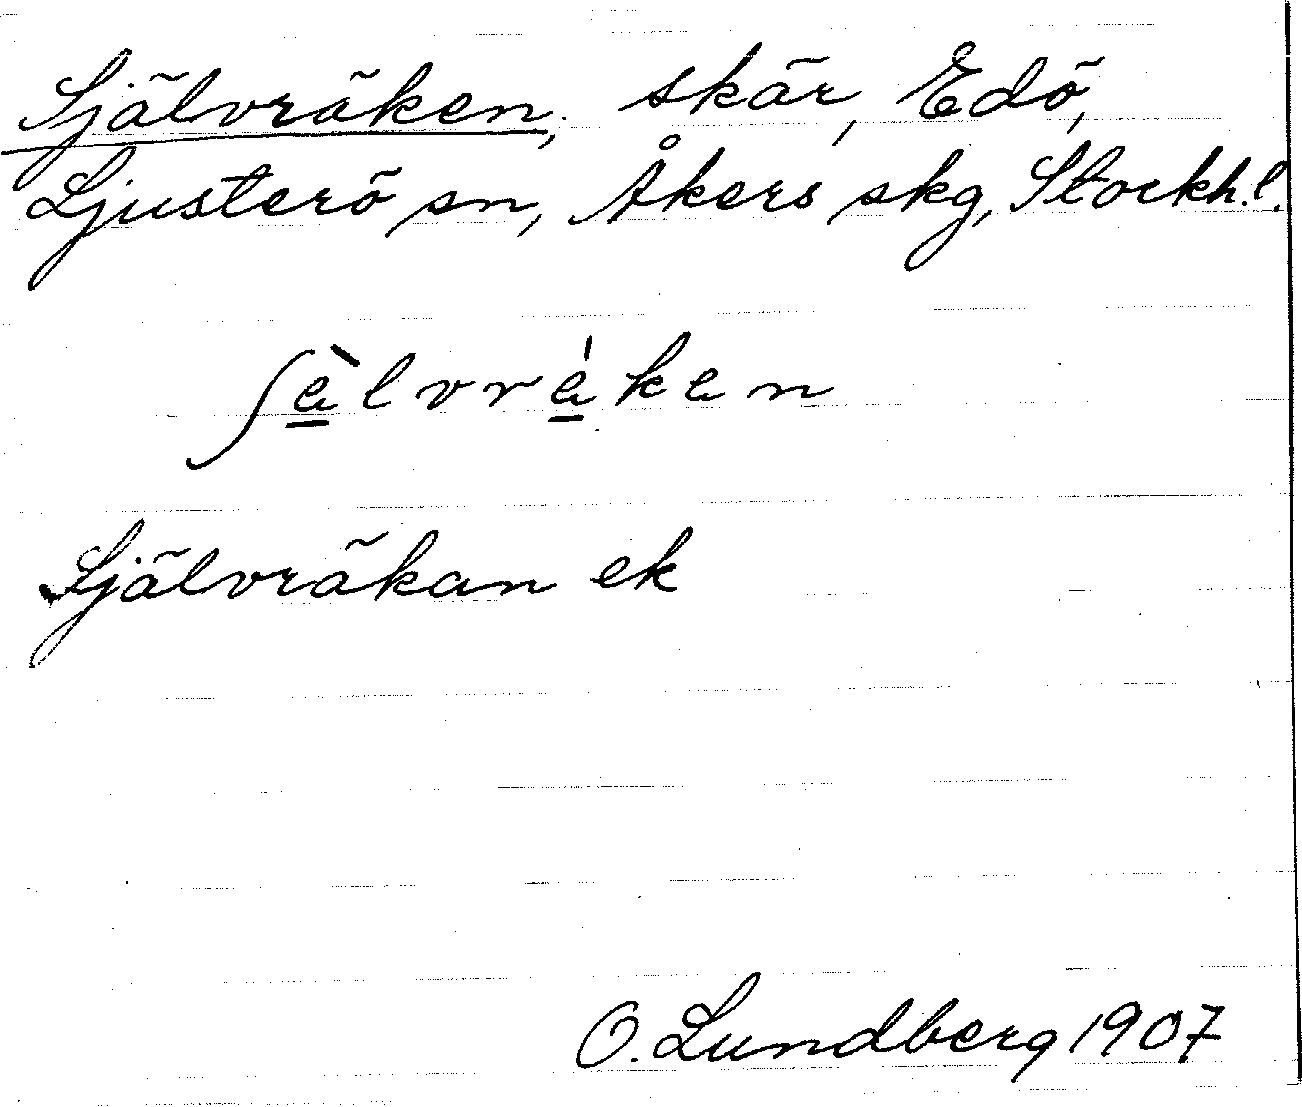 Självräken, skär, Edö,
Ljusterö sn, Åkers skg, Stockh. l.
ʃæ̀lvrǽken
Självräkan ek
O. Lundberg 1907